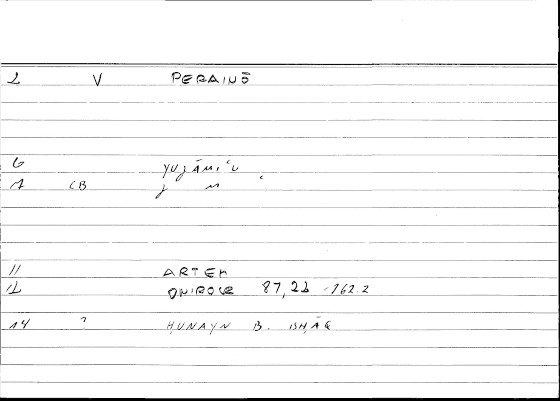 2 V PERAINŌ
6 yujāmiʿu
7 CB j m ʿ
11 ARTEM
12 ONIROCR 87,21 -162.2
14 ? HUNAYN B. ISHĀQ